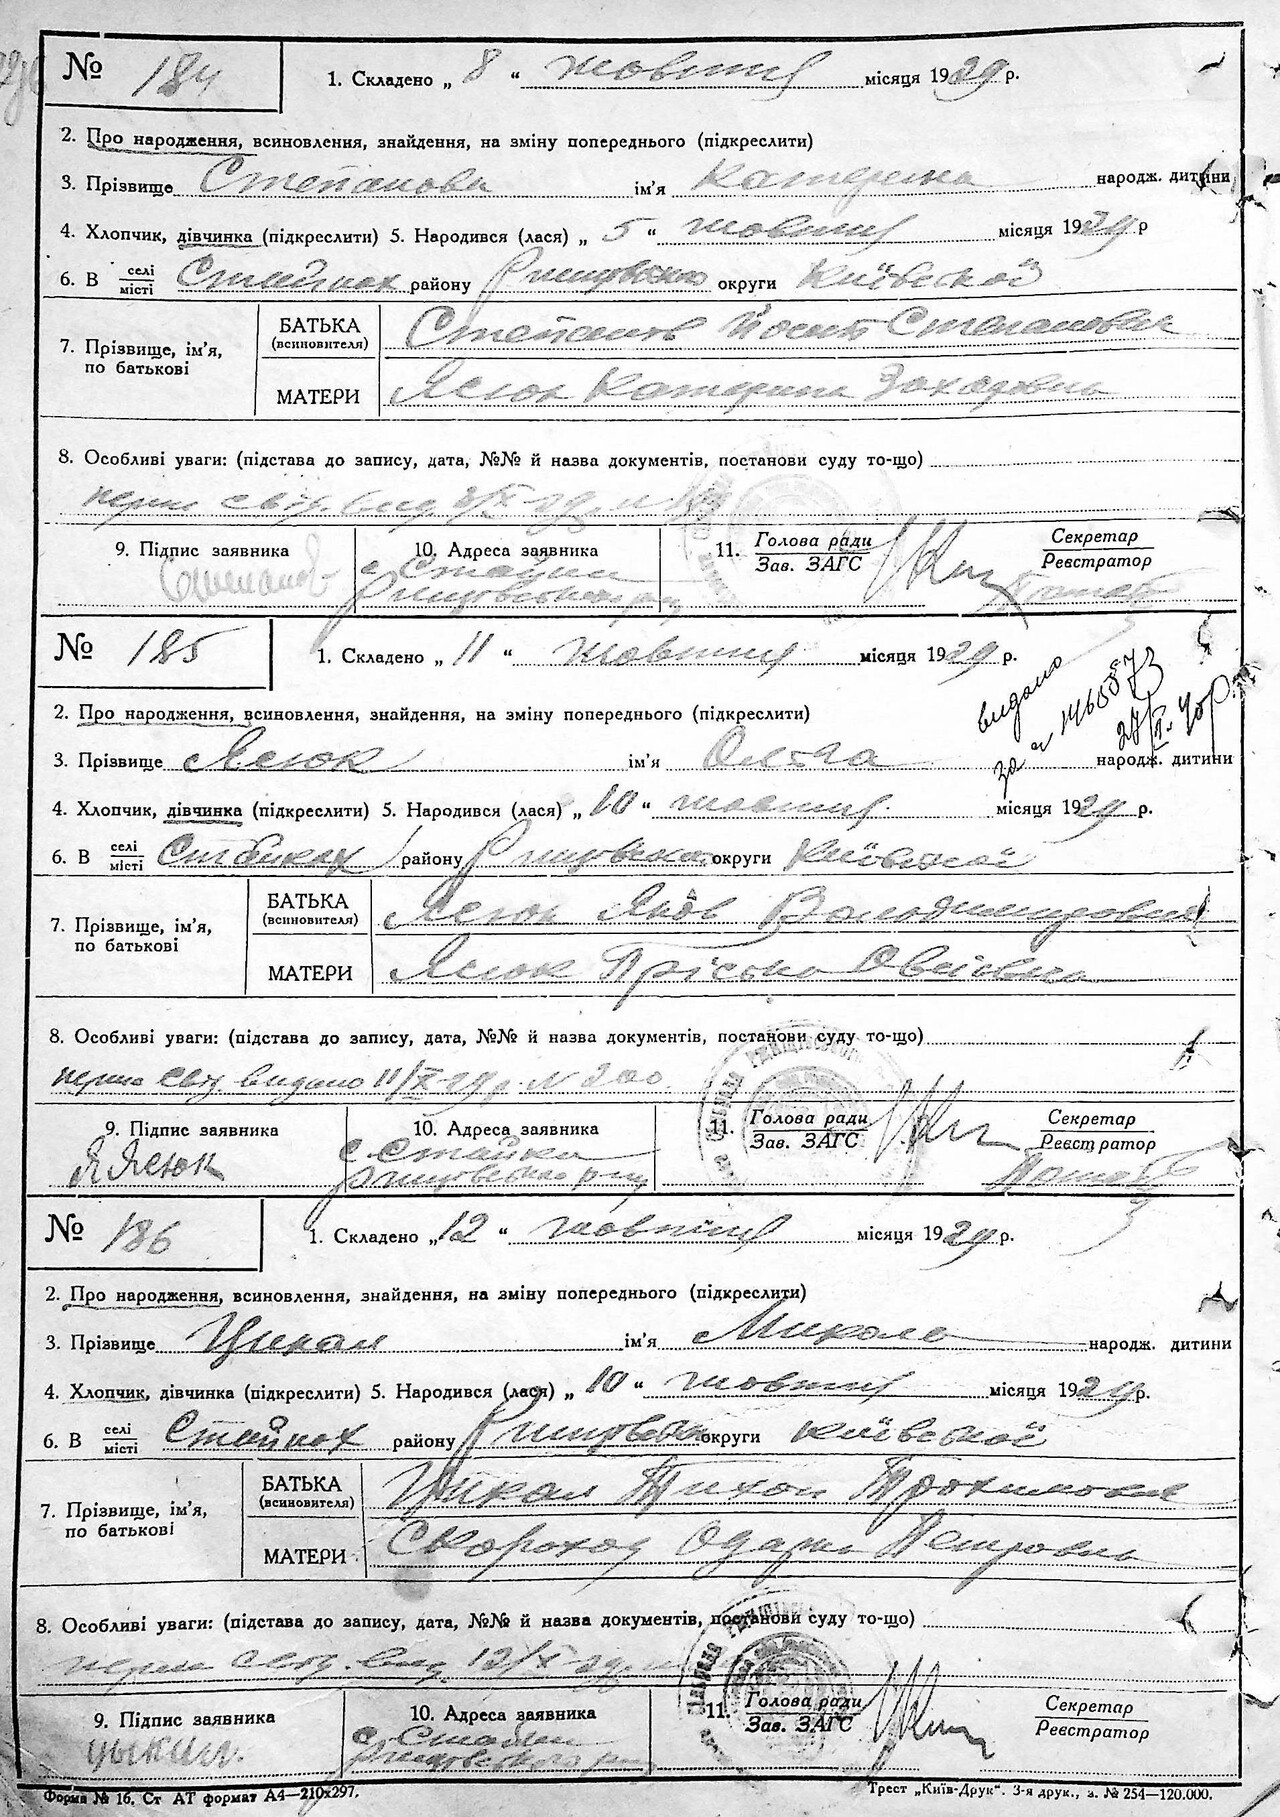 № 184 1. Складено „ 8 “ жовтня місяця 1929 р.
2. Про народження, всиновлення, знайдення, на зміну попереднього (підкреслити)
3. Прізвище Степанова ім’я Катерина народж. дитини
4. Хлопчик, дівчинка (підкреслити) 5. Народився (лася) „ 5 “ жовтня місяця 1929 р
6. В селі місті Стайках району Ржищівсько округи Київської
7. Прізвище, ім’я, по батькові
БАТЬКА (всиновителя) Степанов Йосип Степанович
МАТЕРИ Ясюк Катерина Захаровна
8. Особливі уваги: (підстава до запису, дата, №№ й назва документів, постанови суду то-що)
перш свід. вид. 8/X-29р.
9. Підпис заявника 10. Адреса заявника 11. Голова ради Зав. ЗАГС Секретар Реєстратор
Степанов с. Стайки
Ржищівського р-ну
№ 185 1. Складено „ 11 “ жовтня місяця 1929 р.
видано
за № 27/
2. Про народження, всиновлення, знайдення, на зміну попереднього (підкреслити)
3. Прізвище Ясюк ім’я Ольга народж. дитини
4. Хлопчик, дівчинка (підкреслити) 5. Народився (лася) „ 10 “ жовтня місяця 1929 р.
6. В селі місті Стайках району Ржищівсько округи Київської
7. Прізвище, ім’я, по батькові
БАТЬКА (всиновителя) Ясюк Яків Володимирович
МАТЕРИ Ясюк Прісько Овсіївна
8. Особливі уваги: (підстава до запису, дата, №№ й назва документів, постанови суду то-що)
перш свід. видано 11/X-29 р. N 200.
9. Підпис заявника 10. Адреса заявника 11. Голова ради Зав. ЗАГС Секретар Реєстратор
Я Ясюк с. Стайки
Ржищівсько р-ну
№ 186 1. Складено „ 12 “ жовтня місяця 1929 р.
2. Про народження, всиновлення, знайдення, на зміну попереднього (підкреслити)
3. Прізвище Цикал ім’я Микола народж. дитини
4. Хлопчик, дівчинка (підкреслити) 5. Народився (лася) „ 10 “ жовтня місяця 1929 р.
6. В селі місті Стайках району Ржищівсько округи Київської
7. Прізвище, ім’я, по батькові
БАТЬКА (всиновителя) Цикал Тихон Трохимович
МАТЕРИ Скороход Одарка Петровна
8. Особливі уваги: (підстава до запису, дата, №№ й назва документів, постанови суду то-що)
перш свід. вид. 12/X-29р
9. Підпис заявника 10. Адреса заявника 11. Голова ради Зав. ЗАГС Секретар Реєстратор
с. Стайки
Ржищівського р-ну
Форма № 16. Ст АТ формат А4—210х297. Трест „Київ-Друк“. 3-я друк., з. № 254—120.000.